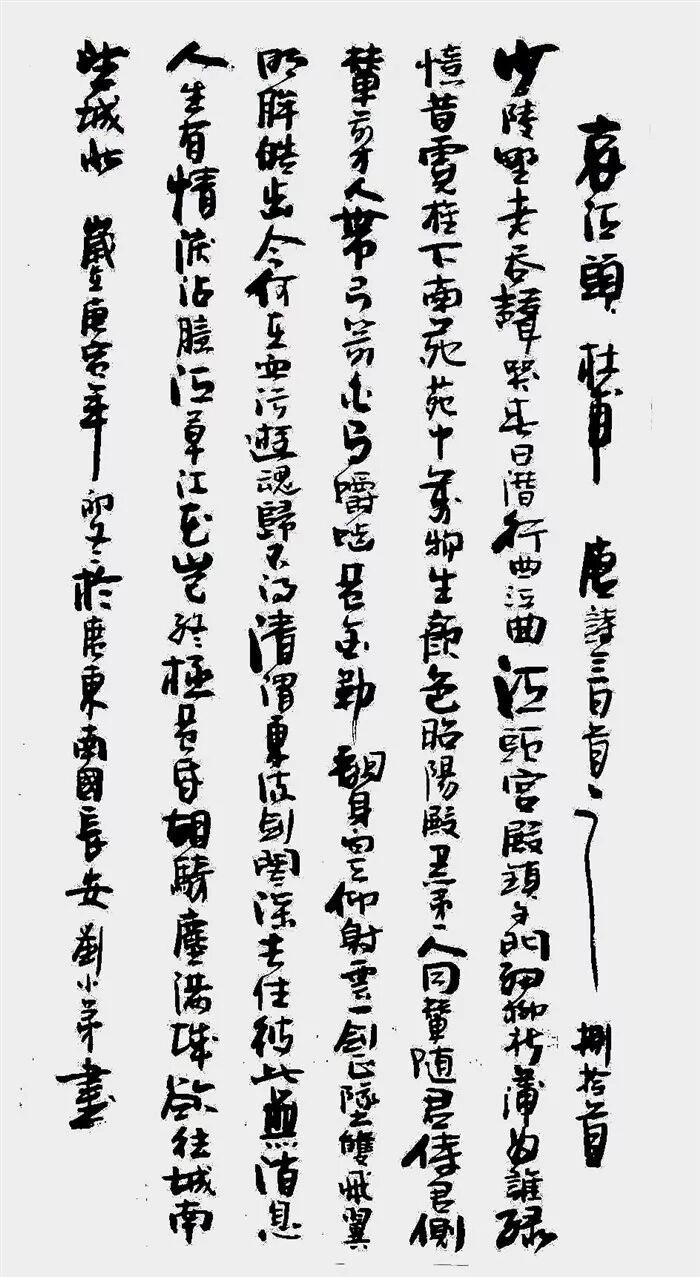 哀江頭 杜甫 唐詩三百首之 捌拾首
少陵野老吞聲哭春日潛行曲江曲江頭宮殿鎖千門細柳新蒲為誰綠
憶昔霓旌下南苑苑中萬物生顏色昭陽殿里第一人同輦随君侍君側
輦前才人帶弓箭白馬嚼嚙黃金勒翻身向天仰射雲一劍正墜雙飛翼
明眸皓齒今何在血污遊魂歸不得清渭東流劍閣深去住彼此無消息
人生有情淚沾臆江草江花豈終極黃昏胡騎塵滿城欲往城南
望城北 歲在庚寅年 於廣東南國長安劉小弟書